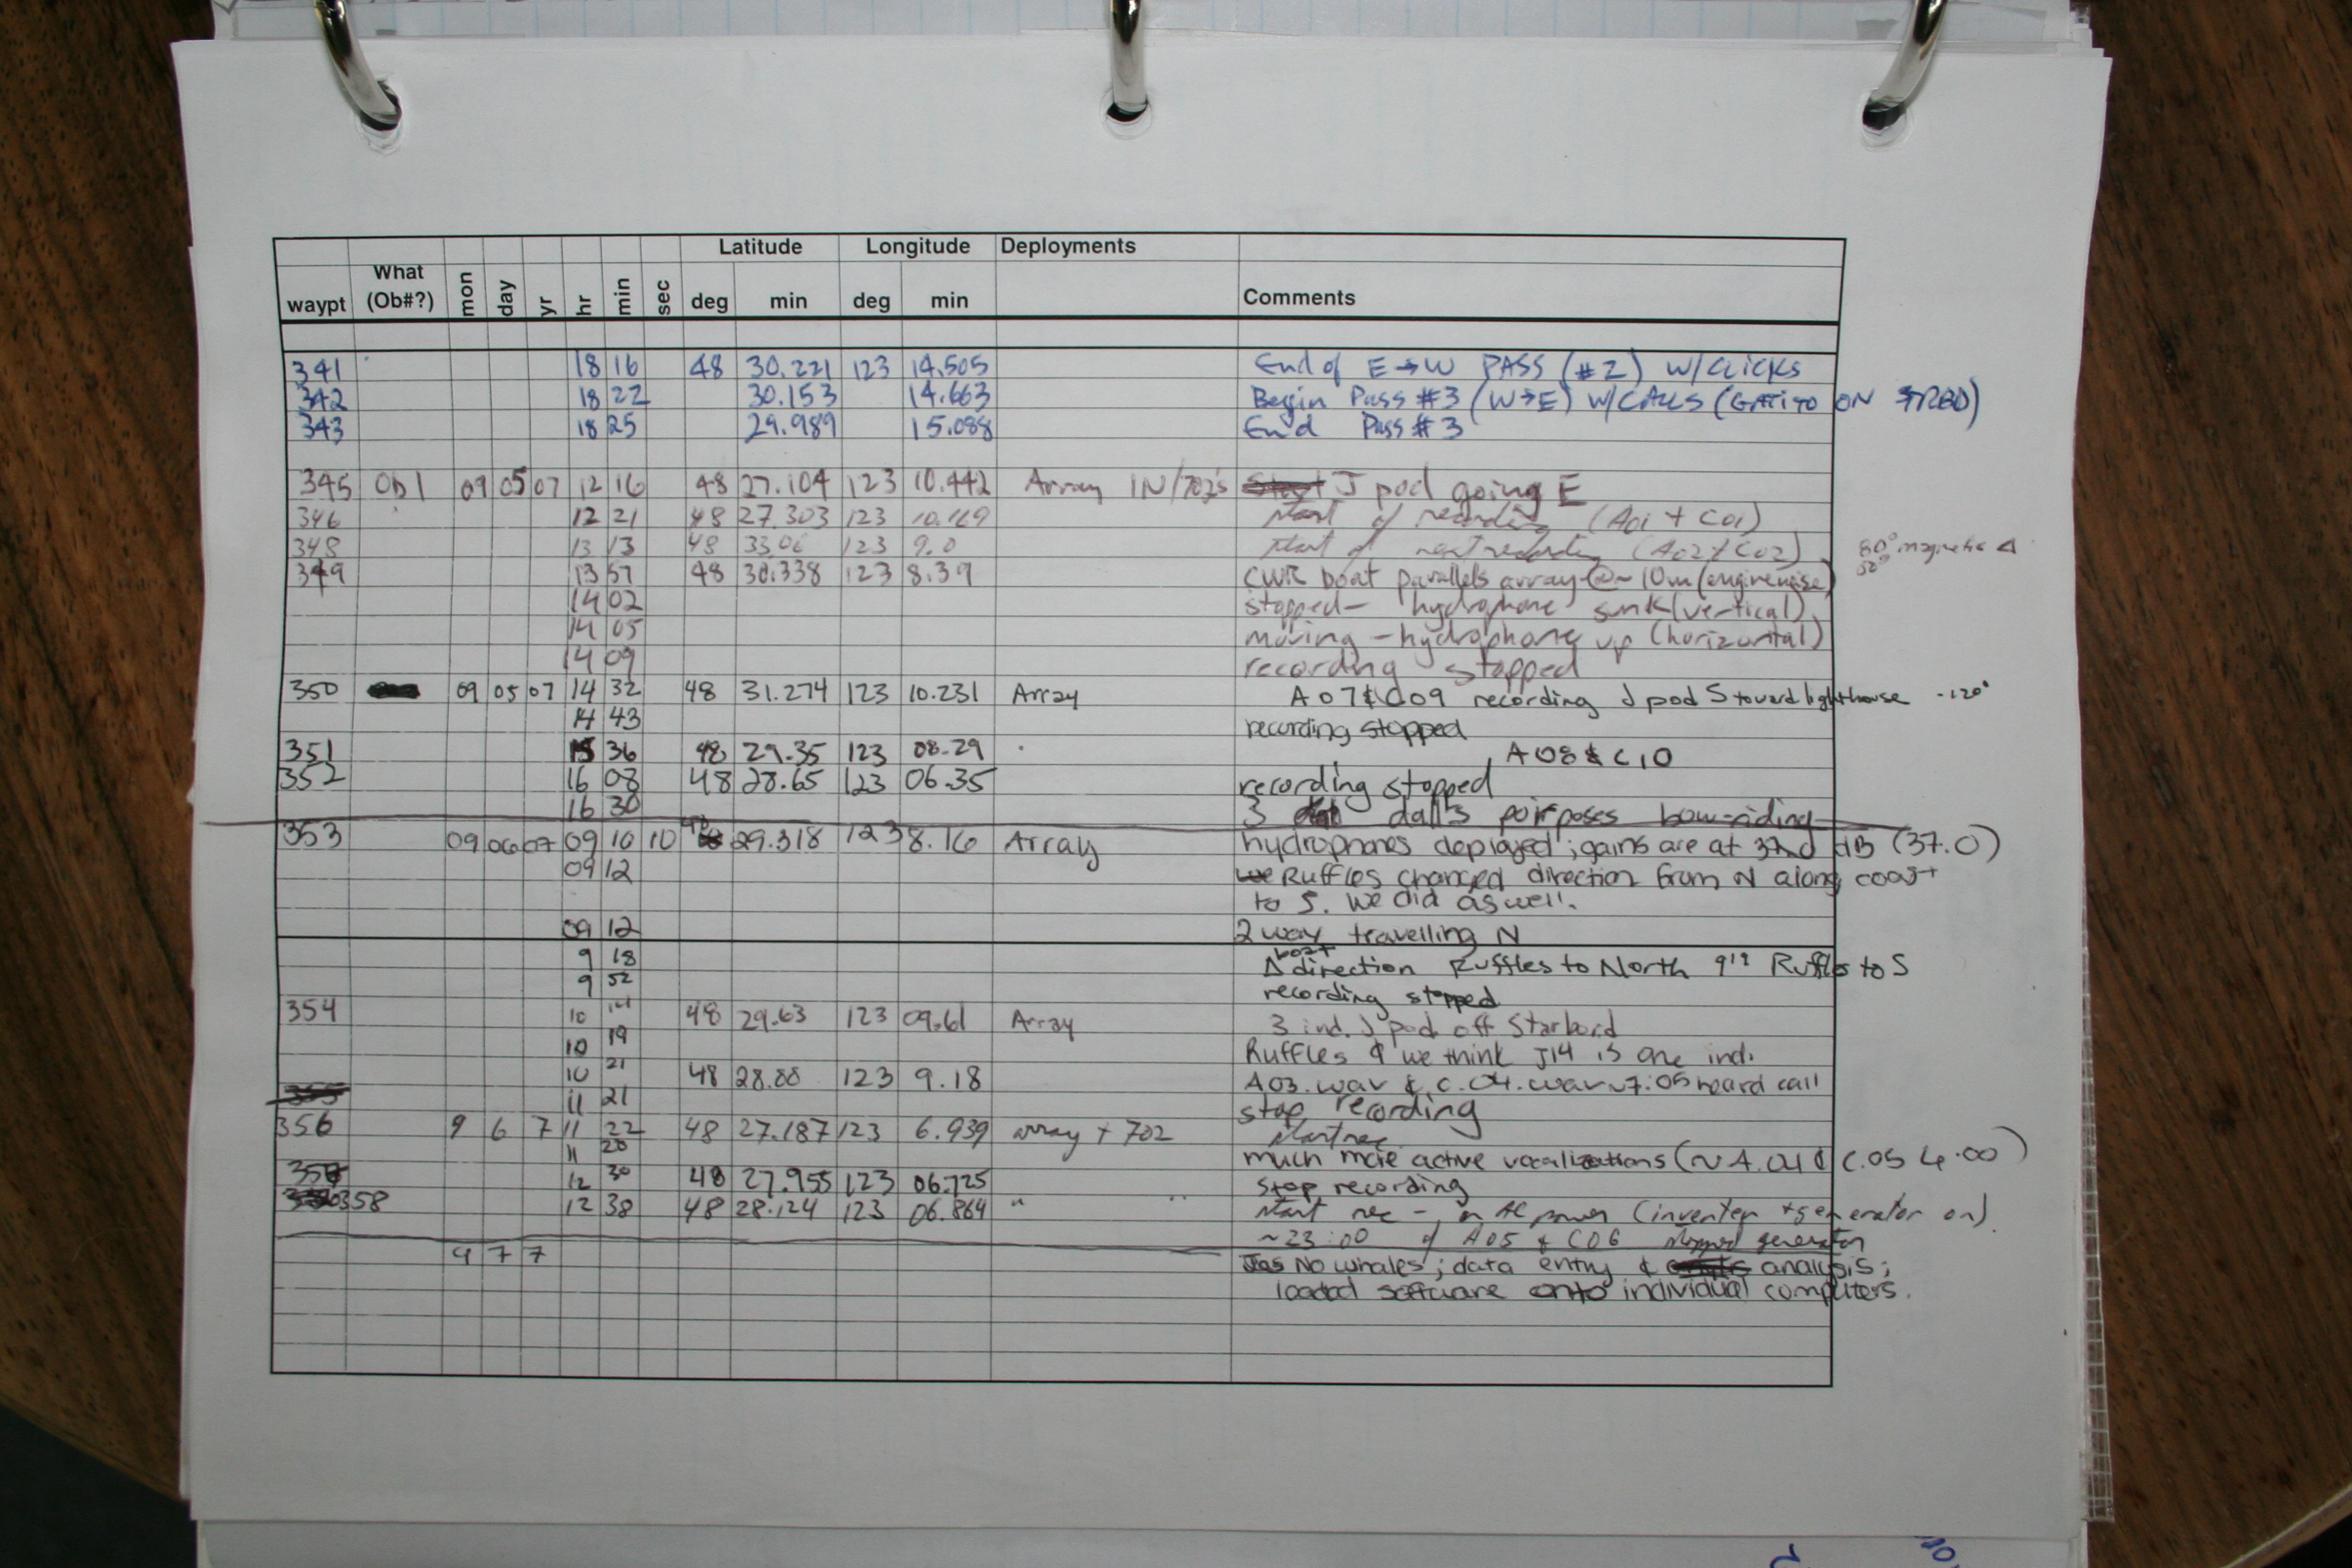 Latitude Longitude Deployments
waypt What (Ob#?) mon day yr hr min sec deg min deg min Comments
341 18 16 48 30.221 123 14.505 End of E→W PASS (#2) W/CLICKS
342 18 22 30.153 14.663 Begin Pass #3 (W→E) W/CALLS (GATITO ON STRBD)
343 18 25 29.989 15.088 End Pass #3
345 Ob 1 09 05 07 12 16 48 27.104 123 10.442 Array IN/702's Start J pod going E
346 12 21 48 27.303 123 10.169 start of recording (A01 + C01)
348 13 13 48 33.06 123 9.0 start of next recording (A02/C02) 80° magnetic Δ
349 13 57 48 30.338 123 8.39 CWR boat parallels array @~10m (engine noise)
14 02 stopped - hydrophone sunk (vertical)
14 05 moving - hydrophone up (horizontal)
14 09 recording stopped
350 09 05 07 14 32 48 31.274 123 10.231 Array A07&C09 recording J pod S toward lighthouse -120°
14 43 recording stopped
351 15 36 48 29.35 123 08.29 A08 & C10
352 16 08 48 28.65 123 06.35 recording stopped
16 30 3 dall's poirposes bow-riding
353 09 06 07 09 10 10 48 29.318 123 8.16 Array hydrophones deployed; gains are at 37.0 dB (37.0)
09 12 we Ruffles changed direction from N along coast
to S. We did as well.
09 12 2 way travelling N
9 18 Δ boat direction Ruffles to North 9'19 Ruffles to S
9 52 recording stopped
354 10 14 48 29.63 123 09.61 Array 3 ind. J pod off Starbord
10 19 Ruffles & we think J14 is one ind.
10 21 48 28.88 123 9.18 A03.wav & c.04.wav ~7:05 heard call
355 11 21 stop recording
356 9 6 7 11 22 48 27.187 123 6.939 array + 702 Start rec
11 20 much more active vocalizations (~A.04 & C.05 4:00)
357 12 30 48 27.955 123 06.725 stop recording
358 12 38 48 28.124 123 06.864 " " start rec - on AC power (inverter + generator on)
~23:00 of A05 & C06 stopped generator
9 7 7 No whales; data entry & analysis;
loaded software onto individual computers.